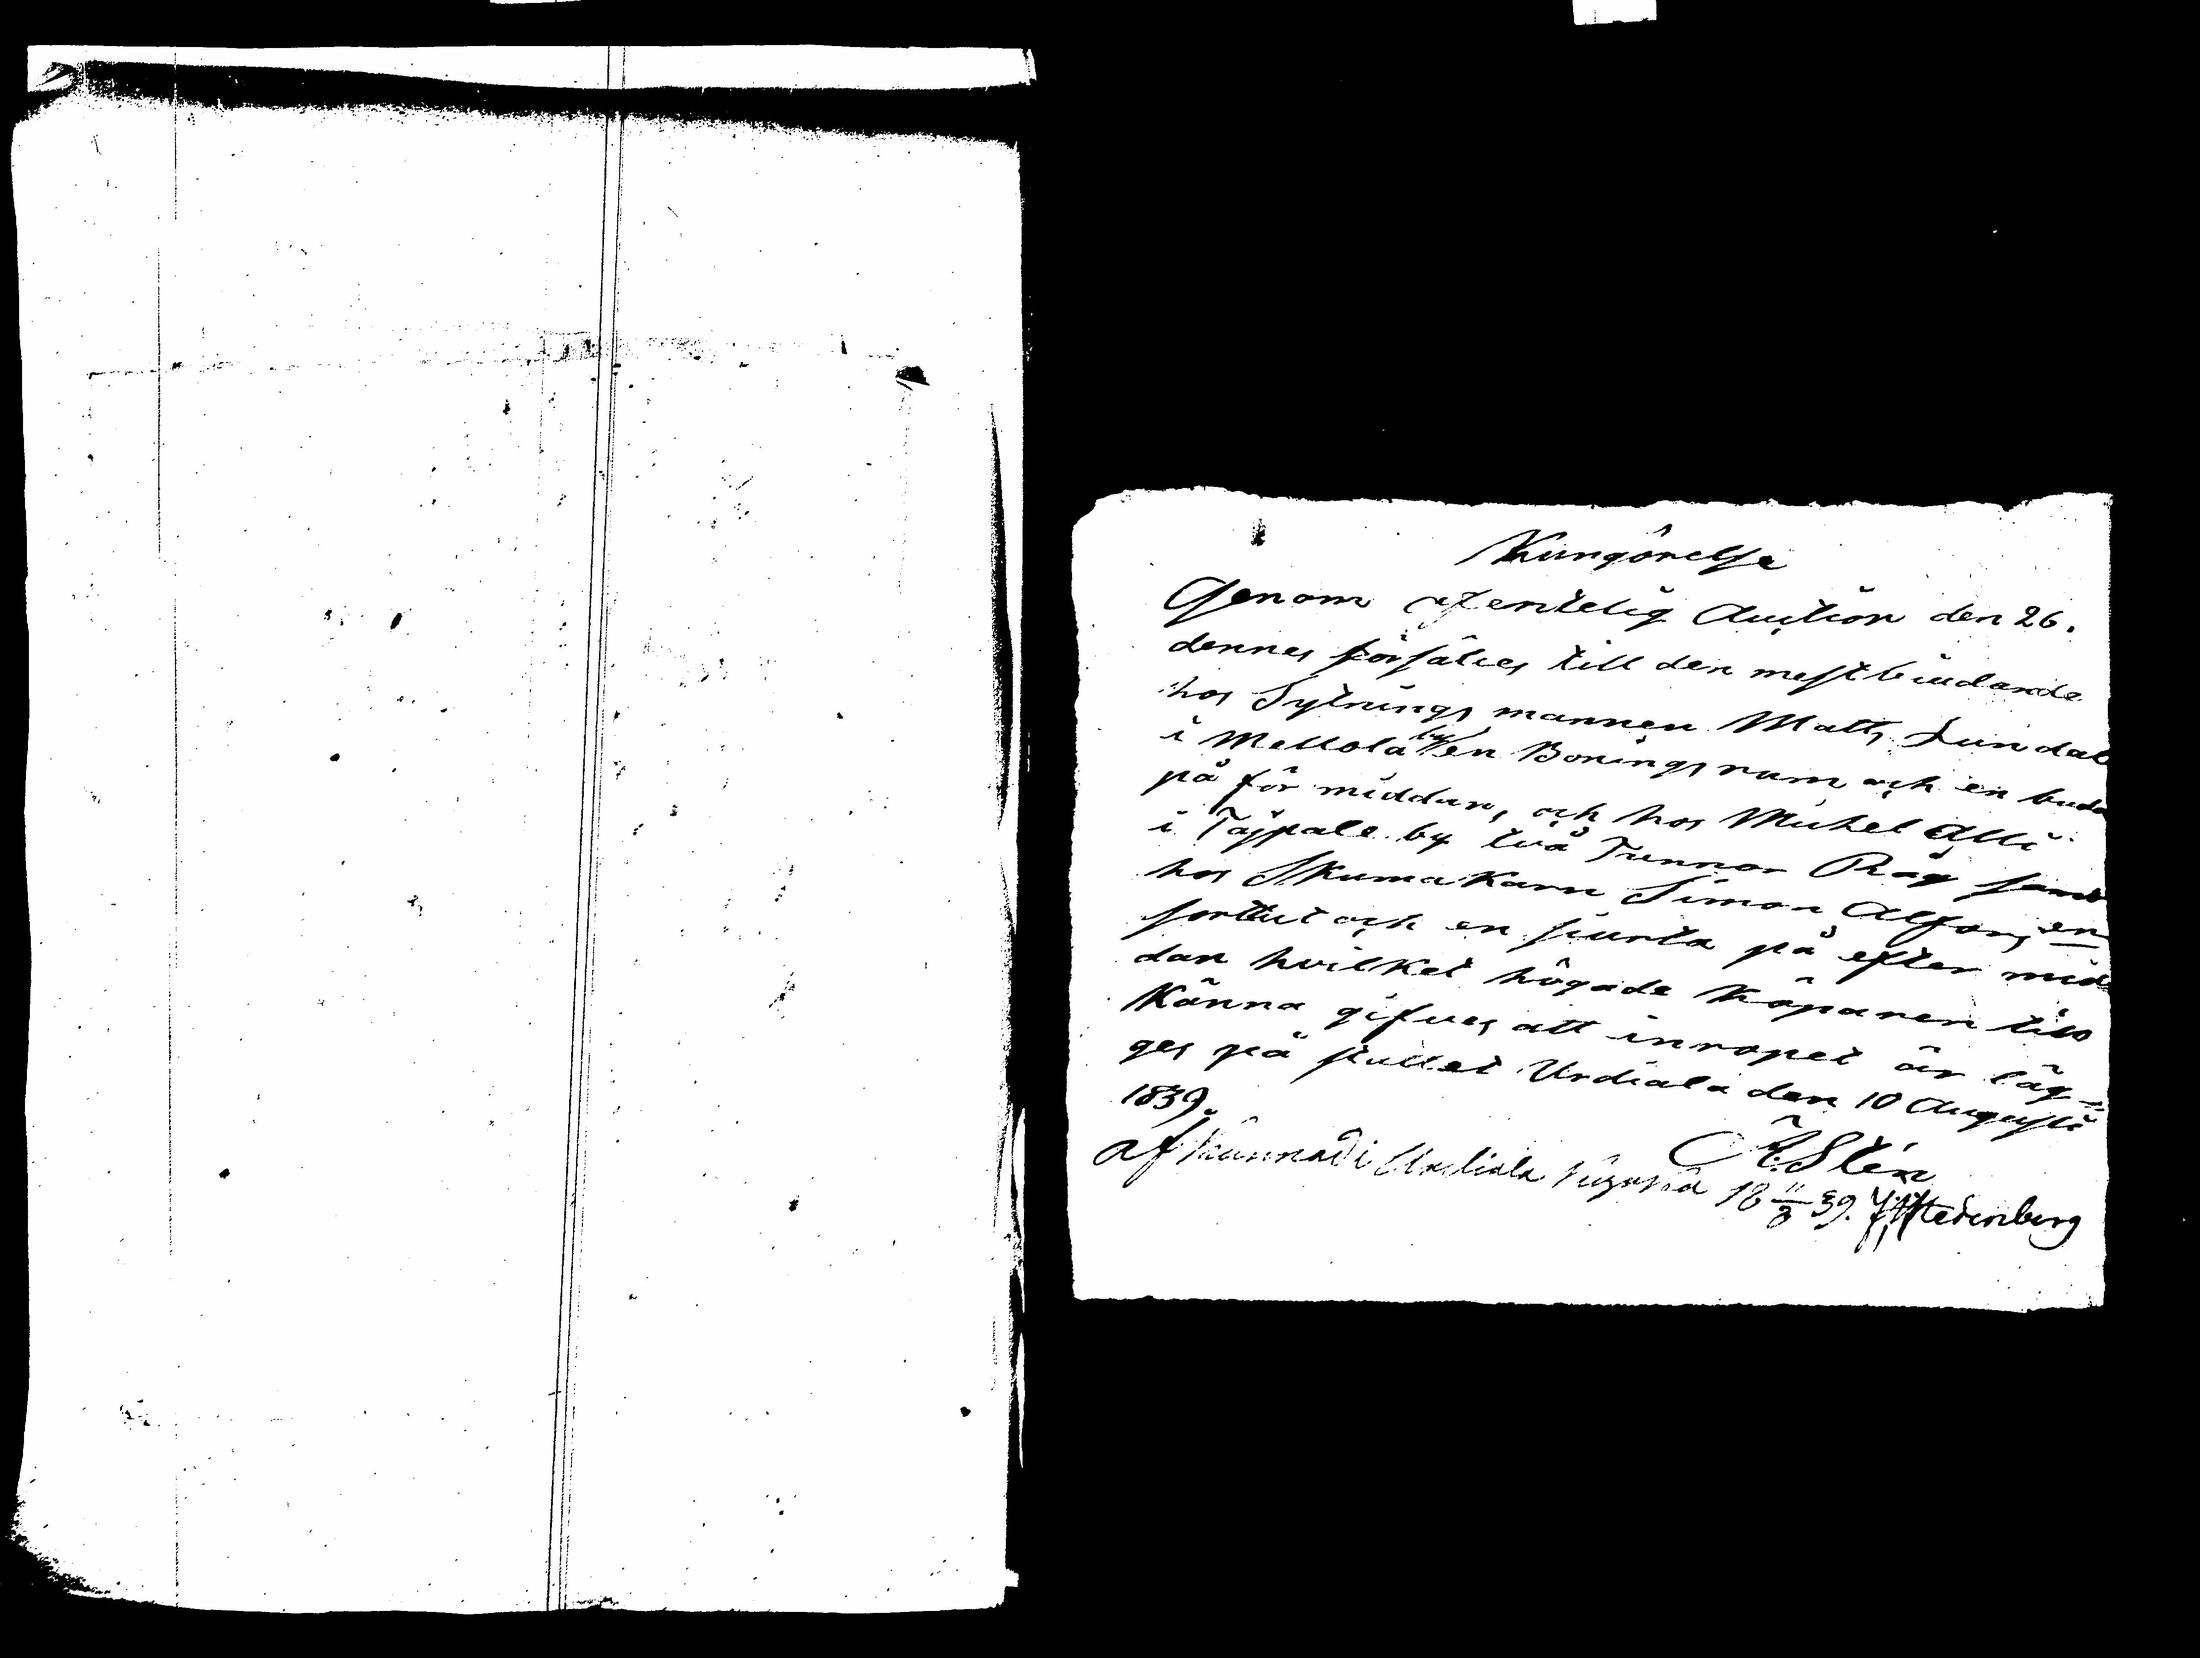 Kungörelse
Genom ofentelig Auction den 26.
dennes försälies till den mest biudande
hos Sytnings mannen Matts Lundal
i Mellola by en Bonings rum och en buda
på för middan, och hos Michel Alli
i Tajpale by två Tunnor Råg samt
hos Skumakarn Simon Alfors en
sortut och en siurta på efter mid
dan hvilket högade Köparen till
Känna gifves att inropet är läg-
ges på stället Urdiala den 10 Augusti
1839.
A. Stén
af kunnad i Urdiala 18 11/8 39.